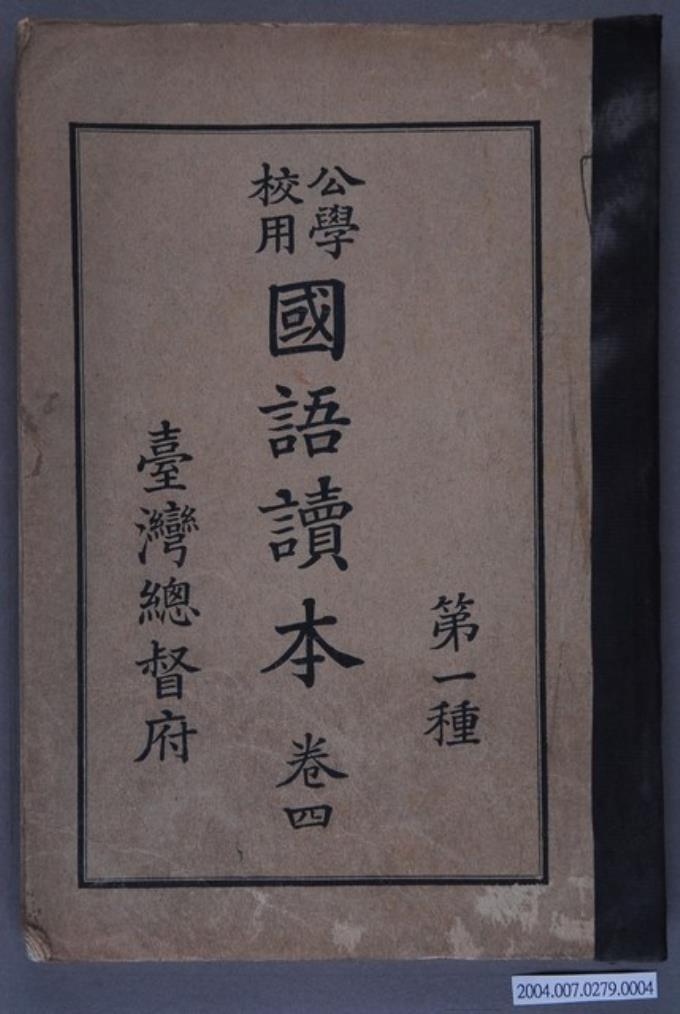 第一種
公學校用
國語讀本 卷四
臺灣總督府
2004.007.0279.0004